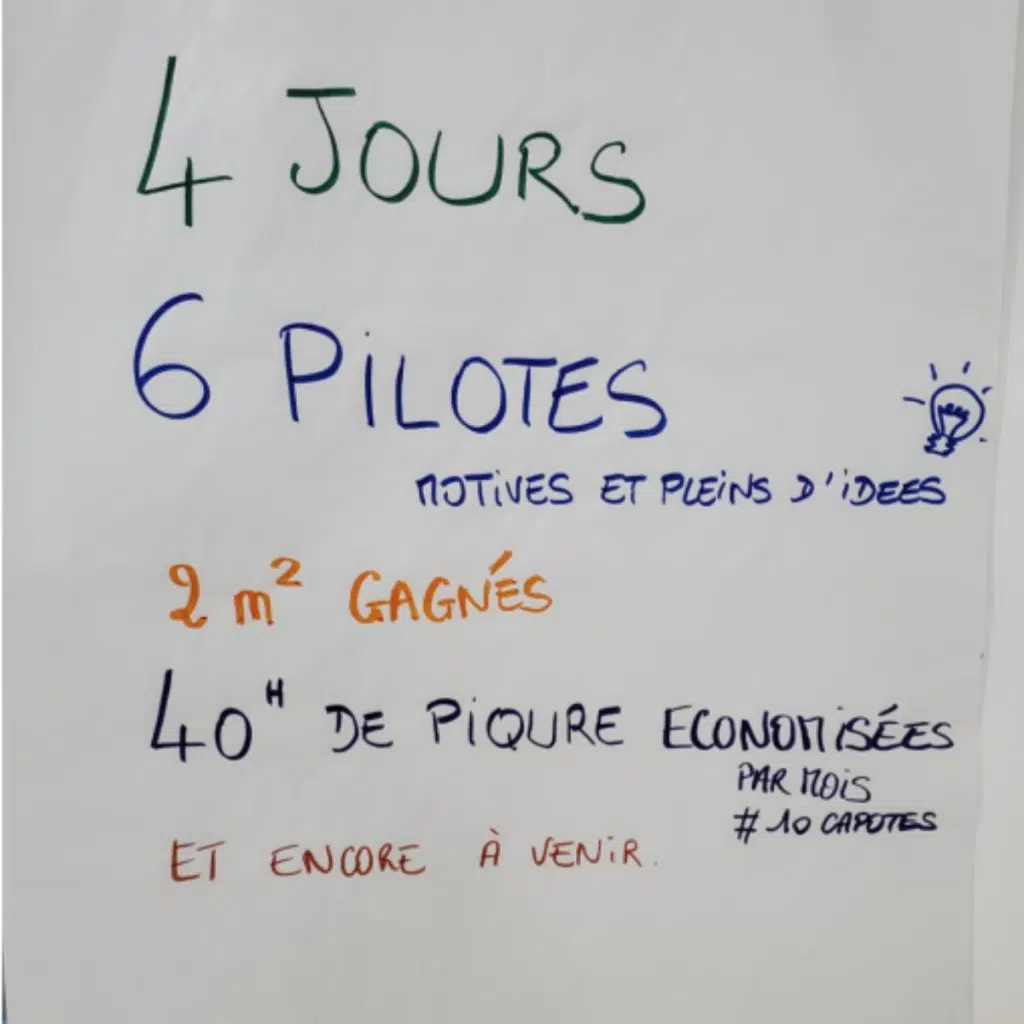 4 JOURS
6 PILOTES
MOTIVES ET PLEINS D'IDEES
2 m² GAGNÉS
40ᴴ DE PIQURE ECONOMISÉES
PAR MOIS
# 10 CAPOTES
ET ENCORE À VENIR.